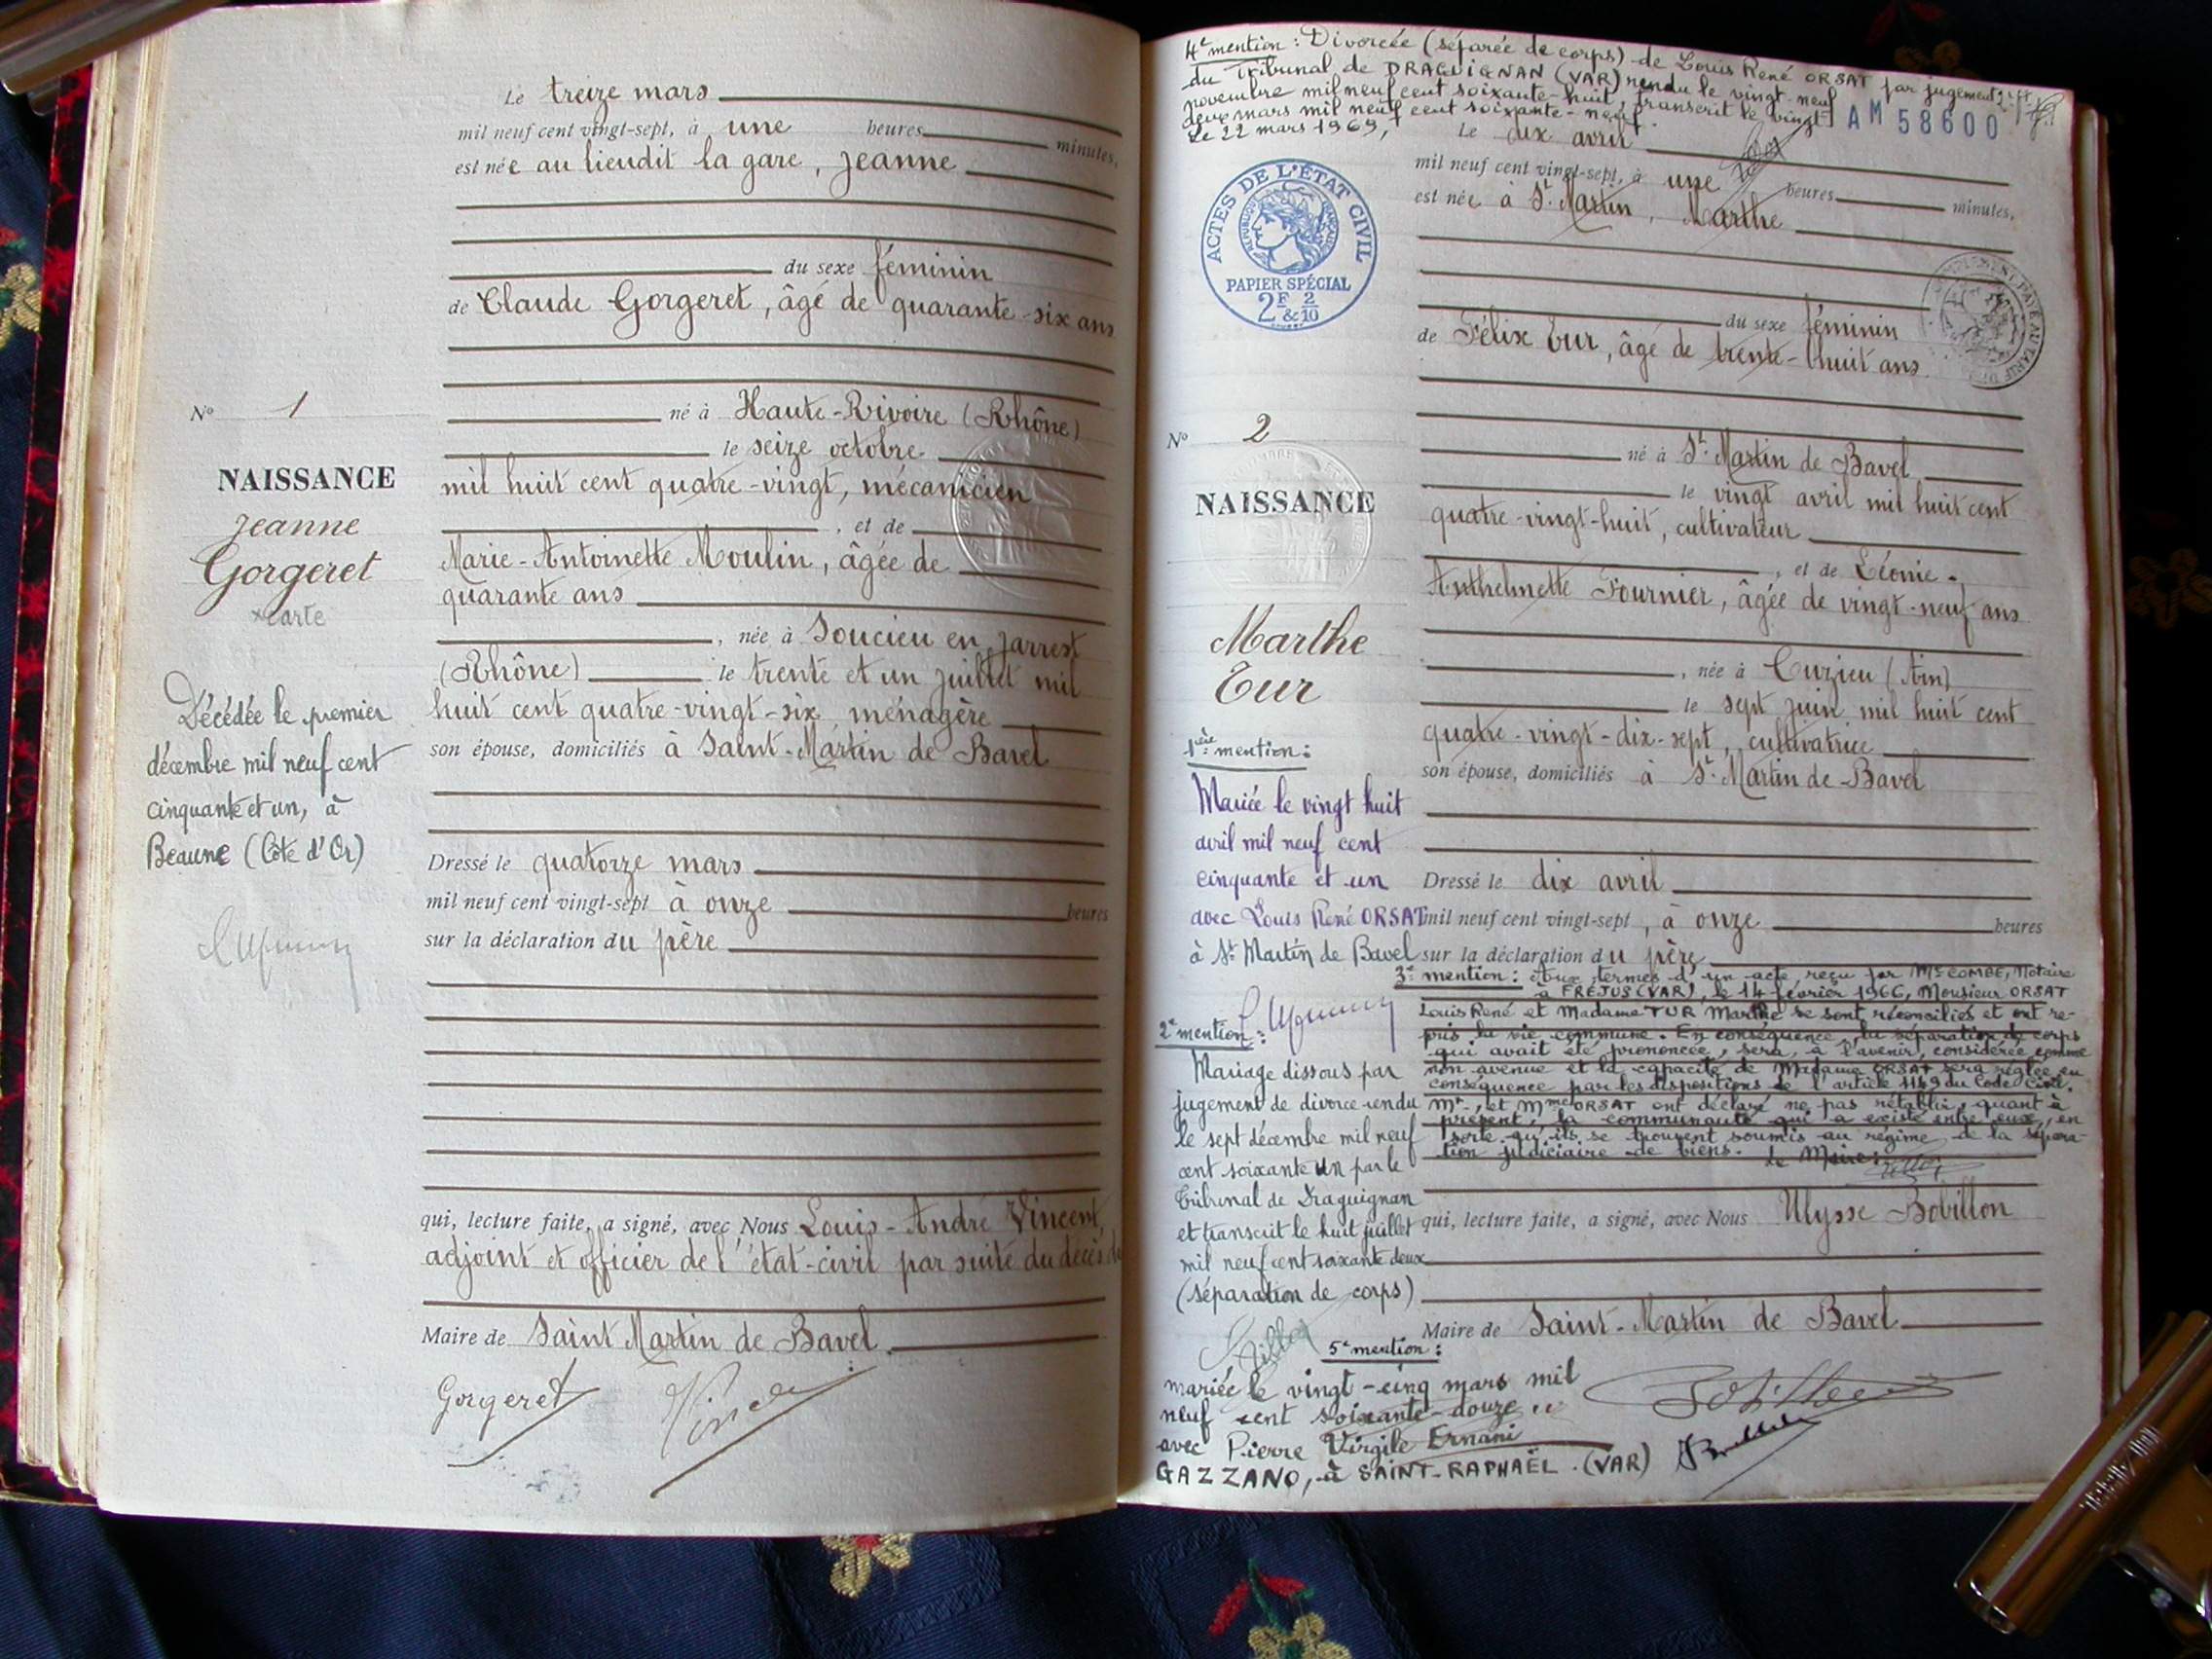 Le treize mars
mil neuf cent vingt-sept, à une heures minutes,
est née au lieudit la gare, Jeanne
du sexe féminin
de Claude Gorgeret, âgé de quarante-six ans
né à Haute-Rivoire (Rhône)
le seize octobre
mil huit cent quatre-vingt, mécanicien
, et de
Marie-Antoinette Moulin, âgée de
quarante ans
, née à Soucieu en Jarrest
(Rhône) le trente et un juillet mil
huit cent quatre-vingt-six, ménagère
son épouse, domiciliés à Saint-Martin de Bavel
Dressé le quatorze mars
mil neuf cent vingt-sept à onze heures
sur la déclaration du père
qui, lecture faite, a signé, avec Nous Louis-André Vincent,
adjoint et officier de l'état-civil par suite du décès du
Maire de Saint Martin de Bavel
Gorgeret Vincent
N° 1
NAISSANCE
Jeanne
Gorgeret
x carte
Décédée le premier
décembre mil neuf cent
cinquante et un, à
Beaune (Côte d'Or)
4e mention : Divorcée (séparée de corps) de Louis René ORSAT par jugement
du Tribunal de DRAGUIGNAN (VAR) rendu le vingt-neuf
novembre mil neuf cent soixante-huit, transcrit le vingt-
deux mars mil neuf cent soixante-neuf.
Le 22 mars 1969,
AM 58600
ACTES DE L'ÉTAT CIVIL
RÉPUBLIQUE FRANÇAISE
PAPIER SPÉCIAL
2F & 2/10
Le dix avril
mil neuf cent vingt-sept, à une heures minutes,
est née à St. Martin, Marthe
du sexe féminin
de Félix Tur, âgé de trente-huit ans
né à St. Martin de Bavel
le vingt avril mil huit cent
quatre-vingt-huit, cultivateur
, et de Léonie-
Anthelmette Fournier, âgée de vingt-neuf ans
, née à Cuzieu (Ain)
le sept juin mil huit cent
quatre-vingt-dix-sept, cultivatrice
son épouse, domiciliés à St. Martin de-Bavel
Dressé le dix avril
mil neuf cent vingt-sept, à onze heures
sur la déclaration du père
3e mention : Aux termes d'un acte reçu par Me COMBE, Notaire
à FRÉJUS (VAR), le 14 février 1966, Monsieur ORSAT
Louis René et Madame TUR Marthe se sont réconciliés et ont re-
pris la vie commune. En conséquence, la séparation de corps
qui avait été prononcée, sera, à l'avenir, considérée comme
non avenue et la capacité de Madame ORSAT sera réglée en
conséquence par les dispositions de l'article 1449 du Code Civil.
Mr., et Mme ORSAT ont déclaré ne pas rétablir, quant à
présent, la communauté qui a existé entre eux, en
sorte qu'ils se trouvent soumis au régime de la sépara-
tion judiciaire de biens. Le Maire :
qui, lecture faite, a signé, avec Nous Ulysse Bobillon
Maire de Saint-Martin de Bavel
N° 2
NAISSANCE
Marthe
Tur
1ère mention :
Mariée le vingt huit
avril mil neuf cent
cinquante et un
avec Louis René ORSAT
à St. Martin de Bavel
2e mention :
Mariage dissous par
jugement de divorce rendu
le sept décembre mil neuf
cent soixante un par le
Tribunal de Draguignan
et transcrit le huit juillet
mil neuf cent soixante deux
(séparation de corps)
5e mention :
mariée le vingt-cinq mars mil
neuf cent soixante-douze
avec Pierre Virgile Ernani
GAZZANO, à SAINT-RAPHAËL. (VAR)